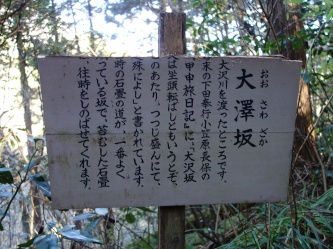 大澤坂
おお さわ ざか
大沢川を渡ったところです。
末の下田奉行小笠原長保の
甲申旅日記』に、「大沢坂
は坐頭転ばしともいうとぞ、
のあたり、つつじ盛んにて、
殊によし」と書かれています。
時の石畳の道が、一番よく
っている坂で、苔むした石畳
、往時をしのばせてくれます。